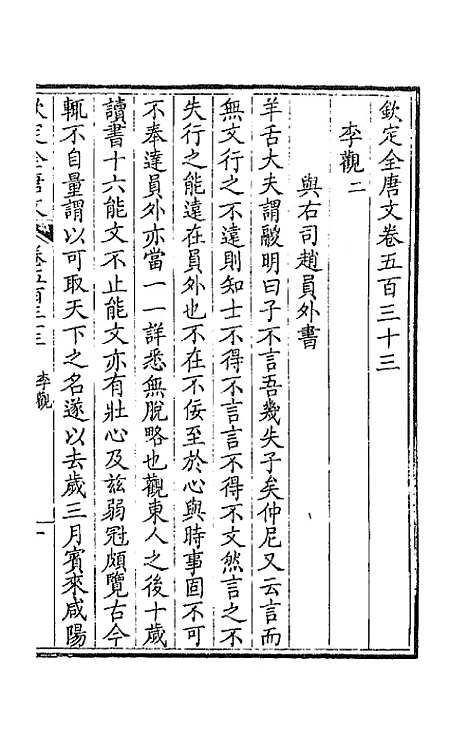 欽定全唐文卷五百三十三
李觀二
與右司趙員外書
羊舌大夫謂鬷明曰子不言吾幾失子矣仲尼又云言而
無文行之不遠則知士不得不言言不得不文然言之不
失行之能遠在員外也不在不佞至於心與時事固不可
不奉達員外亦當一一詳悉無脫略也觀東人之後十歲
讀書十六能文不止能文亦有壯心及茲弱冠頗覽古今
輒不自量謂以可取天下之名遂以去歲三月賓來咸陽
欽定全唐文 卷五百三十三 李觀 一